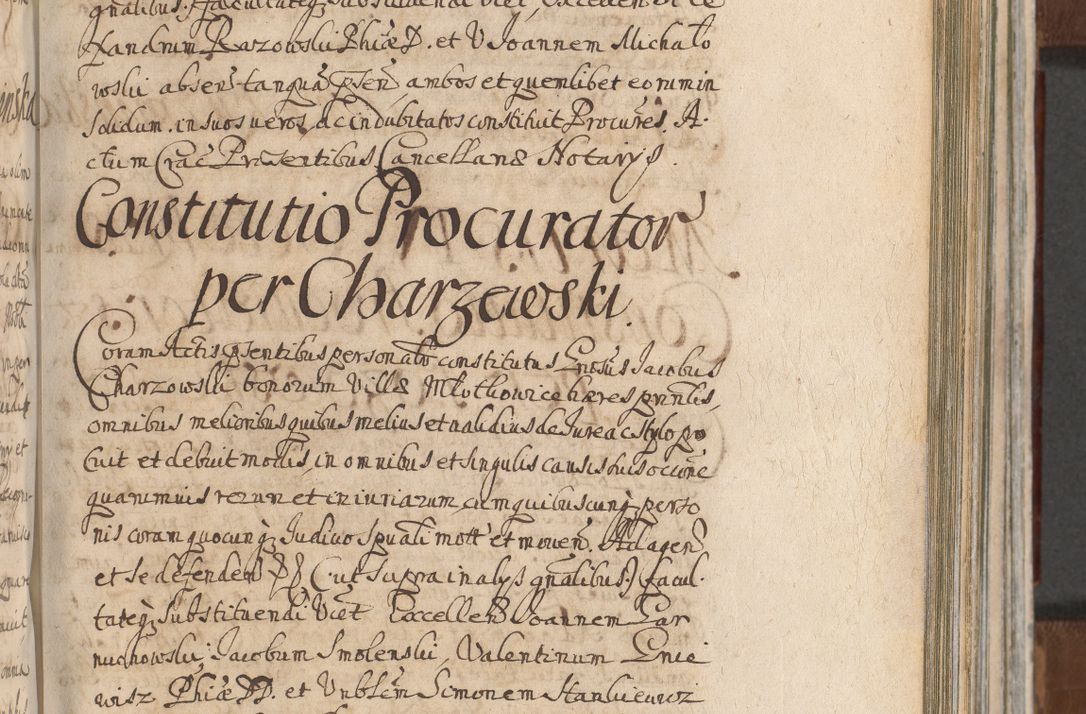 gnalibus.) facultateq substituendi Vict Excellen Ale
xandrum Razowski Phiæ D. et V Joannem Michało
wski absen tanquā psen ambos et quemlibet eorum in
solidum in suos veros ac indubitatos constituit Procures. A-
ctum Crac Præsentibus Cancellariæ Notarys.
Constitutio Procurator
per Charzewski.
Coram Actis psentibus personalr constitutus Gnosus Jacobus
Charzowski bonorum Villæ Młotkowice hæres prinlis,
omnibus melioribus quibus melius et validius de Jure ac stylo po
tuit et debuit modis, in omnibus et singulis causis suis occõne
quarumvis rerum et iniuriarum, cum quibuscunq perso
nis coram quocunq Judicio spuali mott et moven. Ad agen
et se defenden (Cut supra in alys gnalibus.) facul-
tateq substituendi Vict Excellen Joannem Gar
nuchowski, Jacobum Smolenski, Valentinum Gnie
wisz Phiæ DD. et Vnblem Simonem Stankiewicz